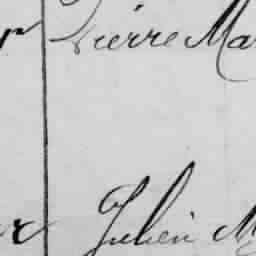 Pierre Ma
Julien M